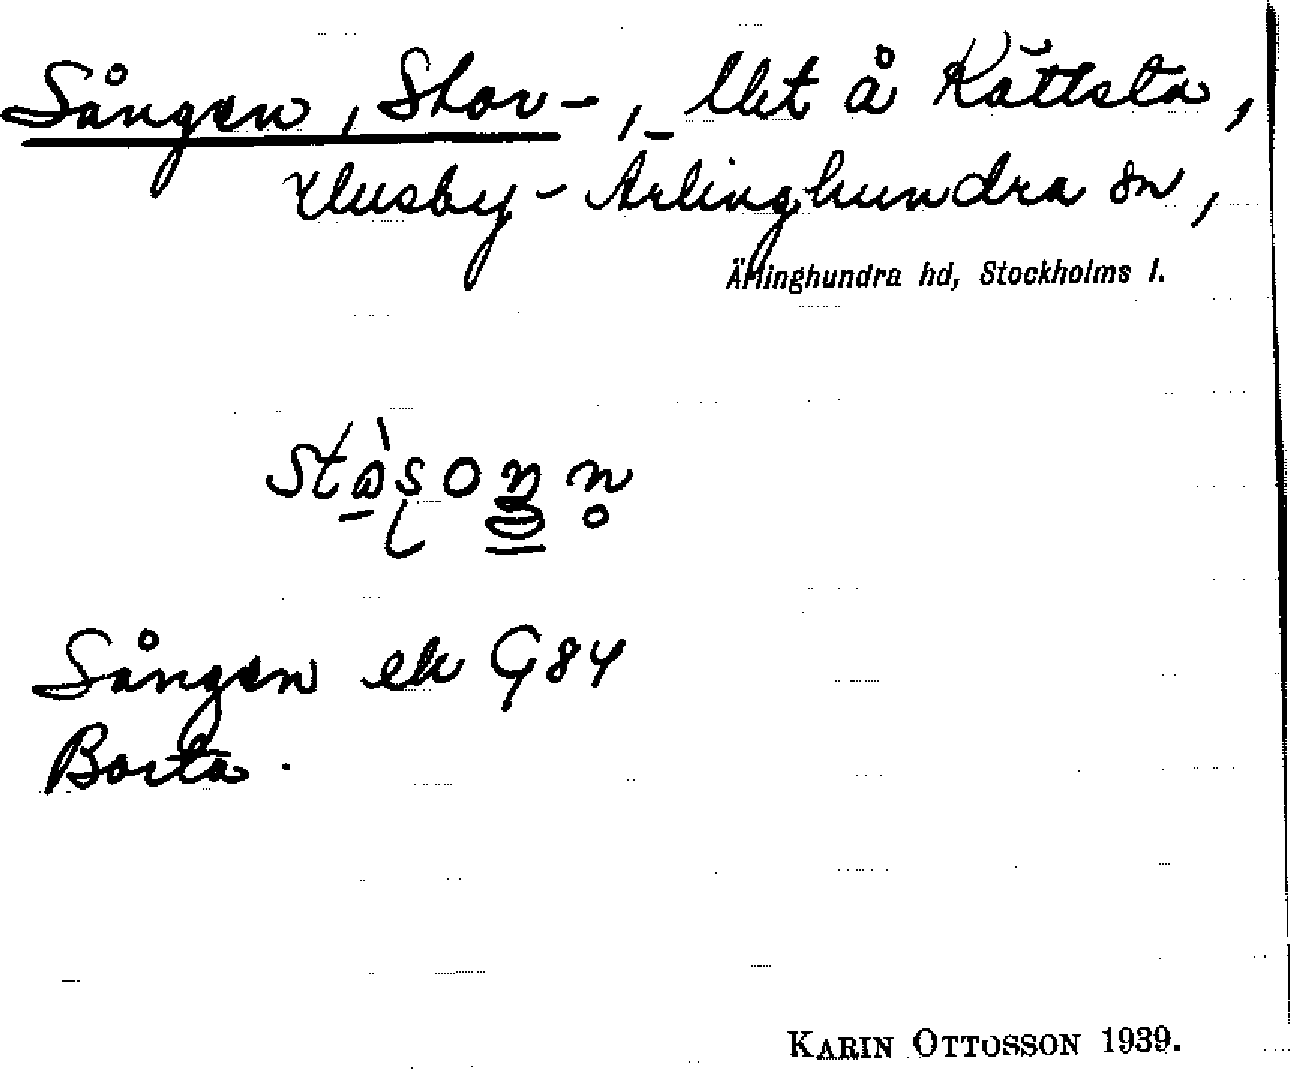 Sången, Stor-, Ust å Kättsta,
Husby-Ärlinghundra sn,
Ärlinghundra hd, Stockholms l.
Sången ek G84
Borta.
KARIN OTTOSSON 1939.